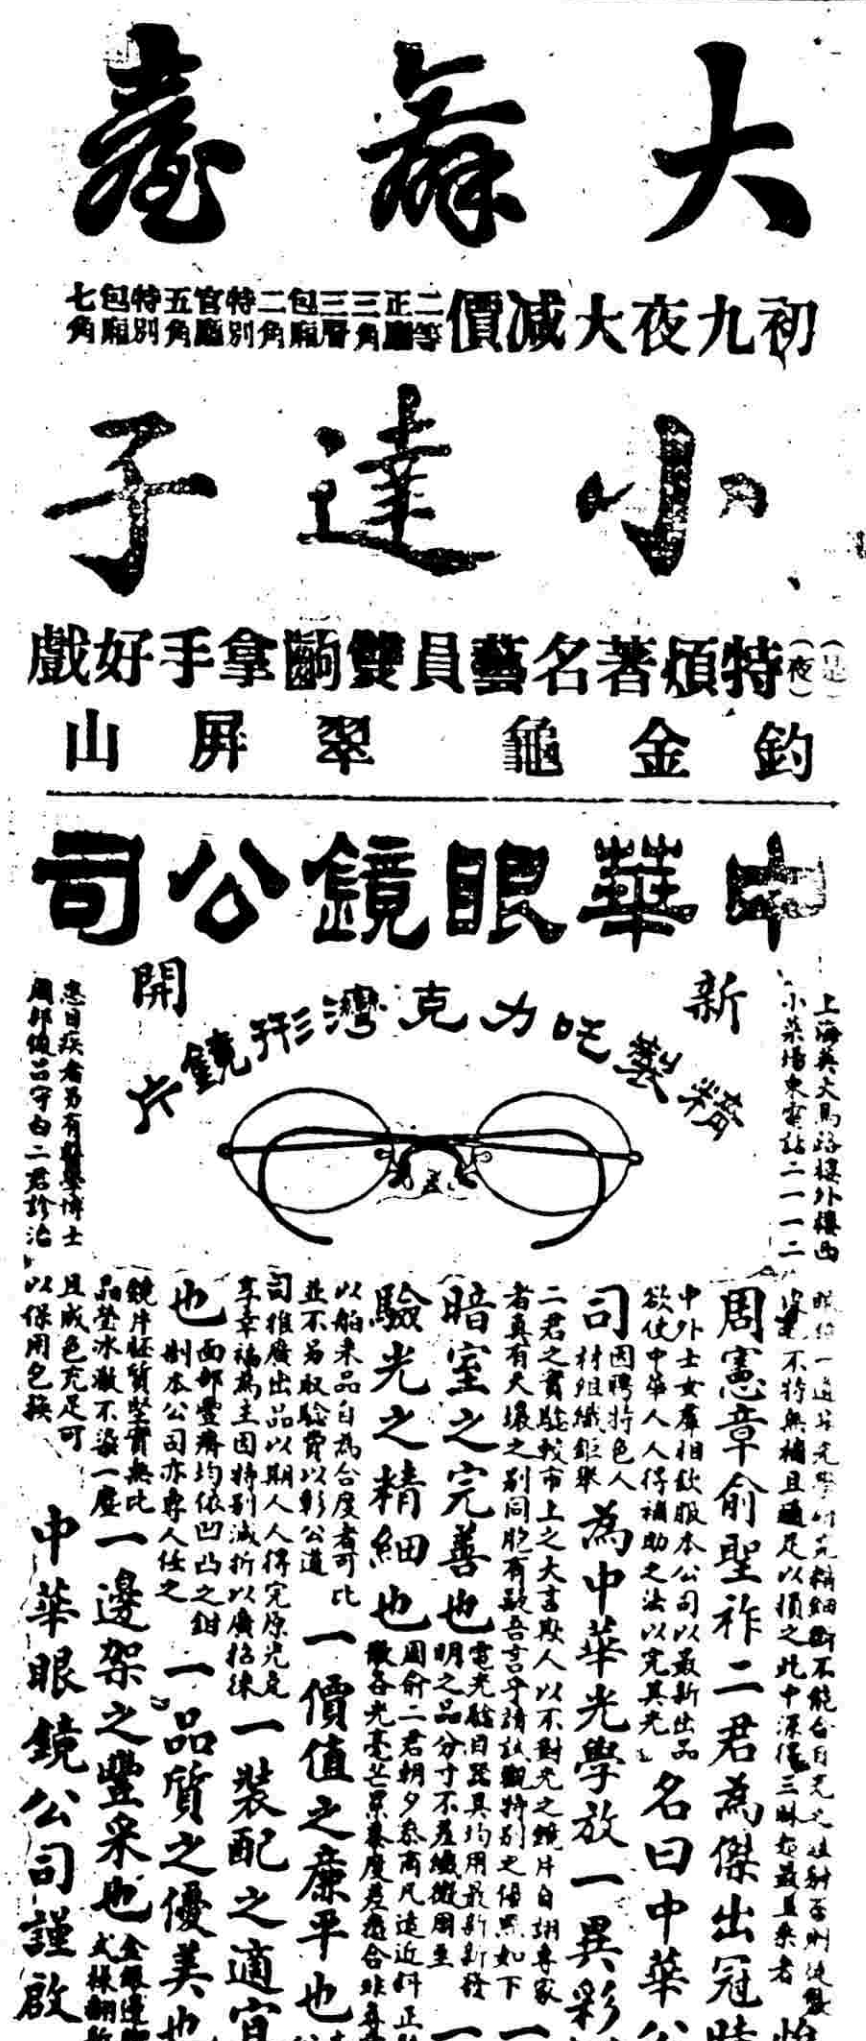 大舞臺
初九夜大減價
二等
正廳
三角
三層
包廂
二角
特別
官廳
五角
特別
包廂
七角
小達子
夜
特煩著名藝員雙齣拿手好戲
釣金龜
翠屏山
中華眼鏡公司
新開
精製吃力克灣形鏡片
上海英大馬路
樓外樓西
小菜場東電話二一一二
患目疾者另有醫學博士
周邦俊呂守白二君診治
周憲章俞聖祚二君為傑出冠時
中外士女羣相欽服本公司以最新出品
欲使中華人人得補助之法以完其光
名曰中華公
司
因聘特色人
材組織鉅舉
為中華光學放一異彩
二君之實驗較市上之大言欺人以不對光之鏡片自詡專家
者真有天壤之別同胞有疑吾言乎請試觀特別之優點如下
一
暗室之完善也
電光驗目器具均用最新新發
明之品分寸不差纖微周至
一
驗光之精細也
周俞二君朝夕參商凡遠近斜正
以舶來品自為合度者可比
並不另取驗費以彰公道
一價值之廉平也
司推廣出品以期人人得完原光定
享幸福為主因特別減折以廣招徠
一裝配之適宜
也
面部豐瘠均依凹凸之鉗
制本公司亦專人任之
一品質之優美也
鏡片胚質堅實無比
晶瑩冰澈不染一塵
一邊架之豐采也
且成色充足可
以保用包換
中華眼鏡公司謹啟